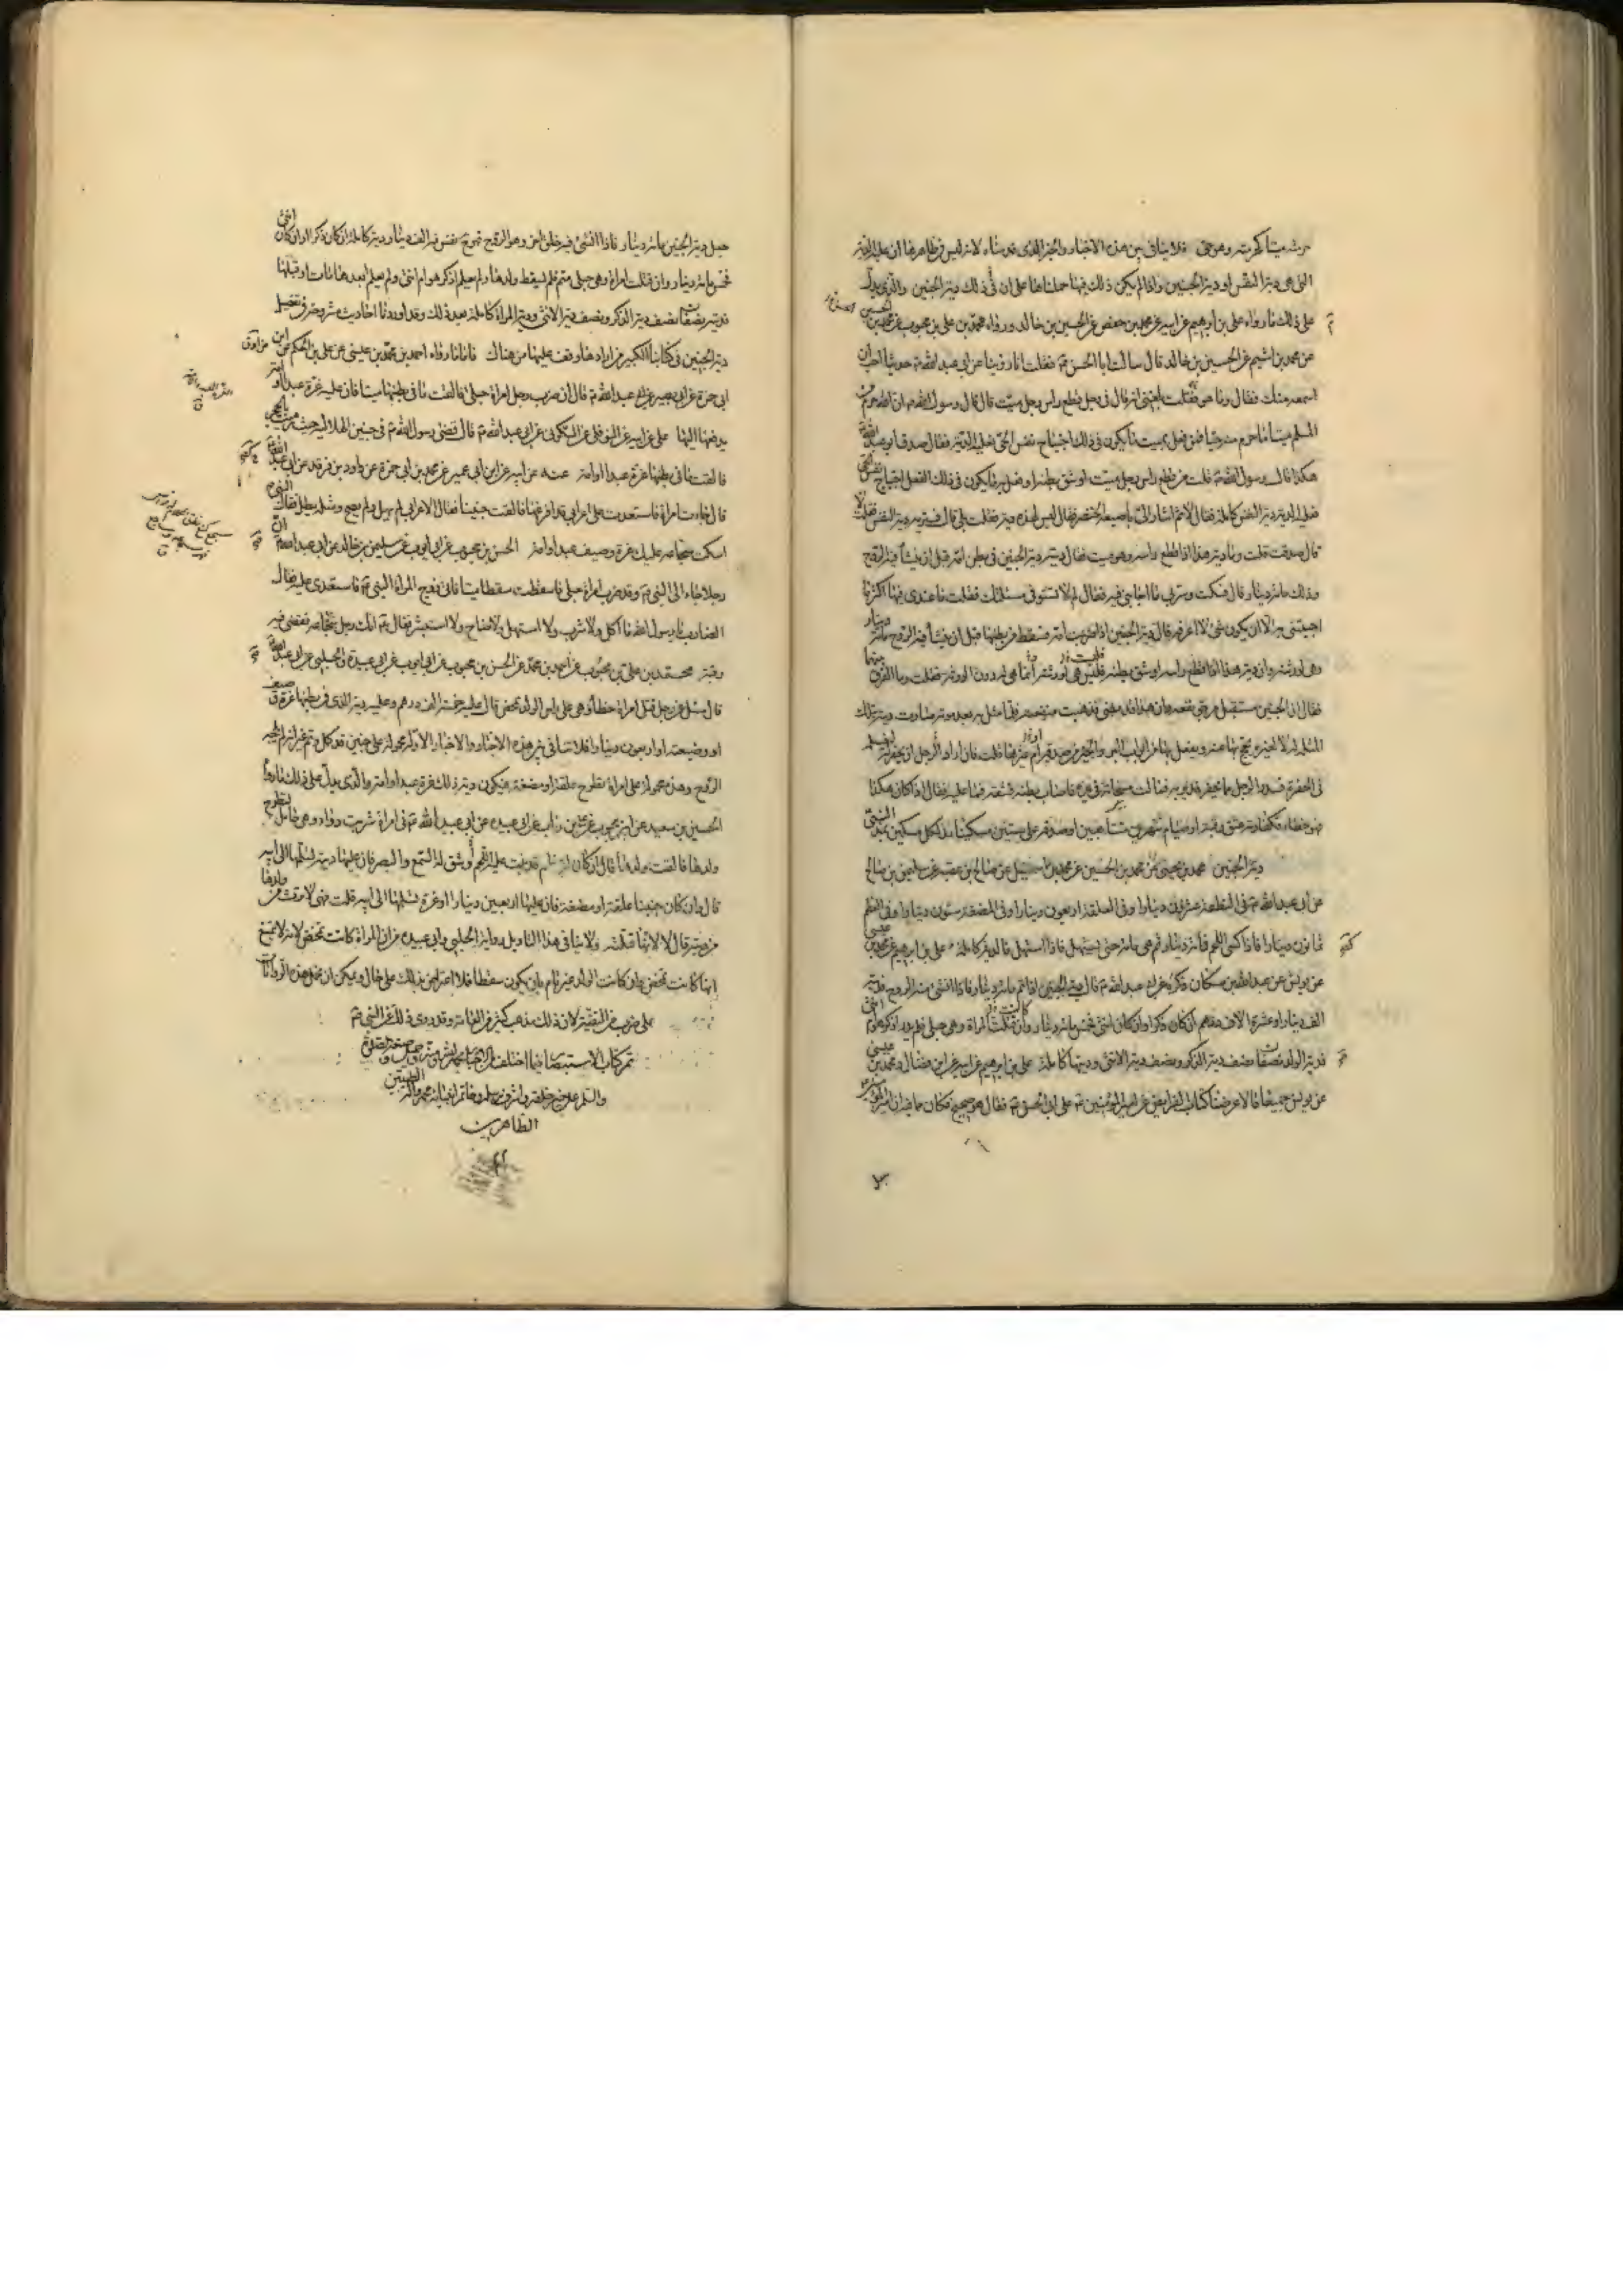 حرمته ميتا كحرمته وهو حي فلا ينافي بين هذه الاخبار والخبر الذي قدمناه لانه ليس في ظاهرها ان عليه الدية
التي هي دية النفس او دية الجنين واذا لم يكن ذلك فيها حملناها على ان في ذلك دية الجنين والذي يدل
على ذلك ما رواه علي بن ابرهيم عن ابيه عن محمد بن حفص عن الحسين بن خالد ورواه محمد بن علي بن محبوب عن محمد بن الحسين
عن محمد بن اشيم عن الحسين بن خالد قال سالت ابا الحسن ع فقلت انا روينا عن ابي عبد الله ع حديثا احب ان
اسمعه منك فقال وما هو فقلت بلغني انه قال في رجل قطع راس رجل ميت قال قال رسول الله ص ان الله حرم من
المسلم ميتا ما حرم منه حيا فمن فعل بميت ما يكون في ذلك اجتياح نفس الحي فعليه الدية فقال صدق ابو عبد الله ع
هكذا قال رسول الله ص قلت من قطع راس رجل ميت او شق بطنه او فعل به ما يكون في ذلك الفعل اجتياح نفس الحي
فعليه الدية دية النفس كاملة فقال لا ثم اشار الي باصبعه الخنصر فقال اليس لهذه دية فقلت بلى قال فتريه دية النفس فقلت لا
قال صدقت قلت وما دية هذا اذا قطع راسه وهو ميت فقال ديته دية الجنين في بطن امه قبل ان ينشأ فيه الروح
وذلك مائة دينار قال فسكت وسرني ما اجابني فيه فقال لم لا تستوفي مسئلتك فقلت ما عندي فيها اكثر مما
اجبتني به الا ان يكون شئ لا اعرفه قال دية الجنين اذا ضربت امه فسقط من بطنها قبل ان ينشأ فيه الروح مائة دينار
وهي لورثته وان دية هذا اذا قطع راسه او شق بطنه فليس هي لورثته انما هي له دون الورثة فقلت وما الفرق بينهما
فقال ان الجنين مستقبل مرجو نفعه وان هذا قد مضى فذهبت منفعته فلما مثل به بعد موته صارت ديته تلك
المثلة له لا لغيره يحج بها عنه ويفعل بها من ابواب البر والخير من صدقة او غيرها قلت فان اراد الرجل ان يحفر له ليغسله
في الحفرة فسدر الرجل مما يحفر فدير به فمالت مسحاته في يده فاصاب بطنه فشقه فما عليه فقال اذا كان هكذا
فهو خطاء وكفارته عتق رقبة او صيام شهرين متتابعين او صدقة على ستين مسكينا مد لكل مسكين بمد النبي ص
دية الجنين محمد بن يحيى عن محمد بن الحسين عن محمد بن اسمعيل عن صالح بن عقبة عن سليمن بن صالح
عن ابي عبد الله ع في النطفة عشرون دينارا وفي العلقة اربعون دينارا وفي المضغة ستون دينارا وفي العظم
ثمانون دينارا فاذا كسي اللحم فمائة دينار ثم هي مائة حتى يستهل فاذا استهل فالدية كاملة علي بن ابرهيم عن محمد بن عيسى
عن يونس عن عبد الله بن مسكان ذكره عن ابي عبد الله ع قال دية الجنين اذا تم مائة دينار فاذا انشئ فيه الروح فديته
الف دينار او عشرة الاف درهم ان كان ذكرا وان كان انثى فخمس مائة دينار وان قتلت المراة وهي حبلى فلم يدر اذكر هو ام انثى
فدية الولد نصفان نصف دية الذكر ونصف دية الانثى وديتها كاملة علي بن ابرهيم عن ابيه عن ابن فضال ومحمد بن عيسى
عن يونس جميعا قالا عرضنا كتاب الفرائض عن امير المؤمنين ع على ابي الحسن ع فقال هو صحيح فكان مما فيه ان امير المؤمنين ع
جعل دية الجنين مائة دينار فاذا انشئ فيه خلق اخر وهو الروح فهو ح نفس فيه الف دينار دية كاملة ان كان ذكرا وان كان انثى
فخمس مائة دينار وان قتلت امراة وهي حبلى متم فلم يسقط ولدها ولم يعلم اذكر هو ام انثى ولم يعلم ابعدها مات او قبلها
فديته نصفان نصف دية الذكر ونصف دية الانثى ودية المراة كاملة بعد ذلك وقد اوردنا احاديث مشروحة في تفصيل
دية الجنين في كتابنا الكبير من ارادها وقف عليها من هناك فاما ما رواه احمد بن محمد بن عيسى عن علي بن الحكم عن ابن
ابي حمزة عن ابي بصير عن ابي عبد الله ع قال ان ضرب رجل امراة حبلى فالقت ما في بطنها ميتا فان عليه غرة عبد او امة
يدفعها اليها علي عن ابيه عن النوفلي عن السكوني عن ابي عبد الله ع قال قضى رسول الله ص في جنين الهلالية حيث رميت بالحجر
فالقت ما في بطنها غرة عبد او امة عنه عن ابيه عن ابن ابي عمير عن محمد بن ابي حمزة عن داود بن فرقد عن ابي عبد الله ع
قال جاءت امراة فاستعدت على اعرابي قد افزعها فالقت جنينا فقال الاعرابي لم يهل ولم يصح ومثله يطل فقال النبي ص
اسكت سجاعة عليك غرة وصيف عبد او امة الحسن بن محبوب عن ابي ايوب عن سليمن بن خالد عن ابي عبد الله ع ان
رجلا جاء الى النبي ص وقد ضرب امراة حبلى فاسقطت سقطا ميتا فاتى زوج المراة النبي ص فاستعدى عليه فقال
الضارب يا رسول الله ما اكل ولا شرب ولا استهل ولا صاح ولا استبشر فقال ص انك رجل سجاعة فقضى فيه
رقبة محمد بن علي بن محبوب عن احمد بن محمد عن الحسن بن محبوب عن ابي ايوب عن ابي عبيدة والحلبي عن ابي عبد الله ع
قال سئل عن رجل قتل امراة خطأ وهي على راس الولد تمخض قال عليه خمسة الف درهم وعليه دية الذي في بطنها غرة وصيف
او وصيفة او اربعون دينارا فلا تنافي بين هذه الاخبار والاخبار الاولة محمولة على جنين قد كمل وتم غير انه لم تلجه
الروح وهذه محمولة على امراة تطرح علقة او مضغة فيكون دية ذلك غرة عبد او امة والذي يدل على ذلك ما رواه
الحسين بن سعيد عن ابن محبوب عن علي بن رئاب عن ابي عبيدة عن ابي عبد الله ع في امراة شربت دواء وهي حامل لتطرح
ولدها فالقت ولدها قال ان كان له عظم قد نبت عليه اللحم وشق له السمع والبصر فان عليها دية تسلمها الى ابيه
قال وان كان جنينا علقة او مضغة فان عليها اربعين دينارا او غرة تسلمها الى ابيه قلت فهي لا ترث من ولدها
من ديته قال لا لانها قتلته ولا ينافي هذا التاويل رواية الحلبي وابي عبيدة من ان المراة كانت تمخض لانه لا يمتنع
انها كانت تمخض وان كانت الولد غير تام بان يكون سقطا فلا اعتراض بذلك على حال ويمكن ان يحمل هذه الروايات
على ضرب من التقية لان ذلك مذهب كثير من العامة وقد روي ذلك عن النبي ص
تم كتاب الاستبصار فيما اختلف من الاخبار
والسلم على خير خلقه واشرف رسله وخاتم انبيائه محمد واله الطيبين
الطاهرين